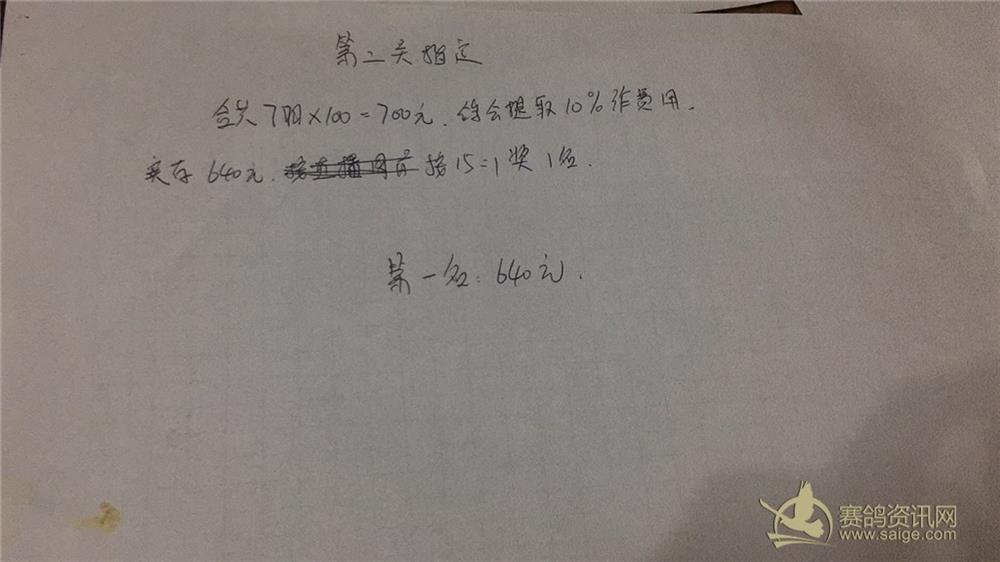 第二关指定
合共7羽×100=700元.鸽会提取10%作费用.
实存640元.按15=1奖1名.
第一名:640元.
赛鸽资讯网
www.saige.com